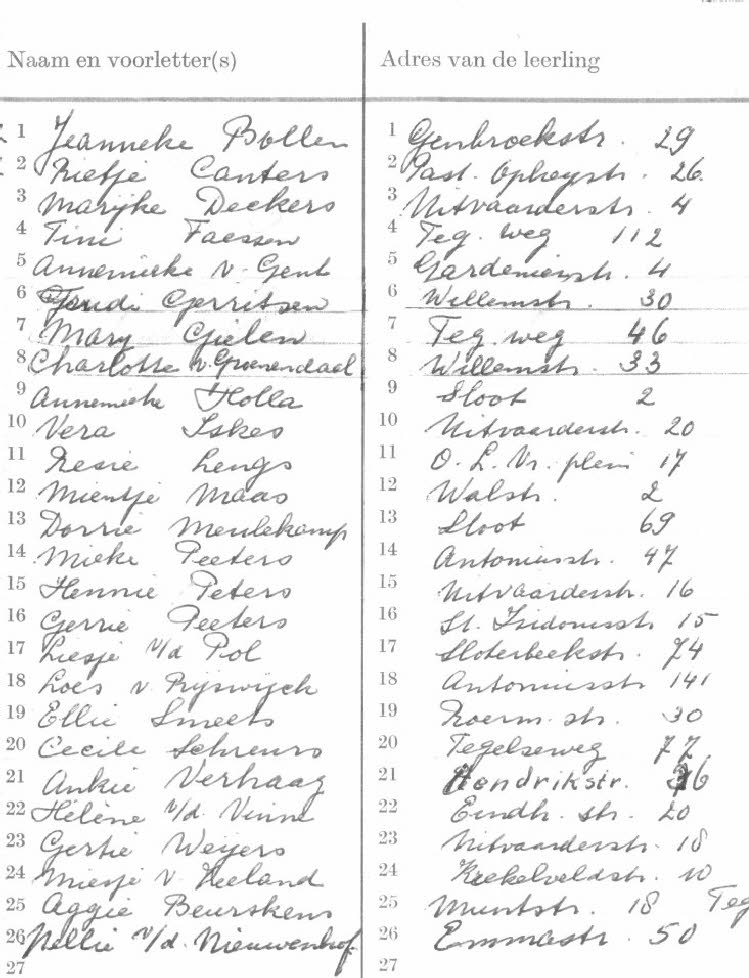 Naam en voorletter(s) Adres van de leerling
1 Jeanneke Bollen 1 Genbroekstr. 29
2 Rietje Canters 2 Past. Opheystr. 26.
3 Marijke Deckers 3 Uitvaarderstr. 4
4 Tini Faessen 4 Teg. weg 112
5 Annemieke v. Gent 5 Gardenierstr. 4
6 Gerritsen 6 Willemstr. 30
7 Mary Gielen 7 Teg. weg 46
8 Charlotte v. Groenendaal 8 Willemstr. 33
9 Annemieke Holla 9 Sloot 2
10 Vera Iskes 10 Uitvaarderstr. 20
11 Resie Lengs 11 O. L. Vr. plein 17
12 Mientje Maas 12 Walstr. 2
13 Dorrie Meulekamp 13 Sloot 69
14 Mieke Peeters 14 Antoniusstr. 47
15 Hennie Peters 15 Uitvaarderstr. 16
16 Gerrie Peeters 16 St. Isidorusstr. 15
17 Liesje v/d Pol 17 Sloterbeekstr. 74
18 Loes v Rijswijck 18 Antoniusstr 141
19 Ellie Smeets 19 Roerm. str. 30
20 Cecile Schreurs 20 Tegelseweg 77.
21 Ankie Verhaag 21 Hendrikstr.
22 Hélène v/d. Vinne 22 Eindh. str. 20
23 Gertie Weijers 23 Uitvaarderstr. 18
24 Miesje v. Neeland 24 Krekelveldstr. 10
25 Aggie Beurskens 25 Muntstr. 18 Teg
26 Nellie v/d. Nieuwenhof. 26 Emmastr. 50
27 27